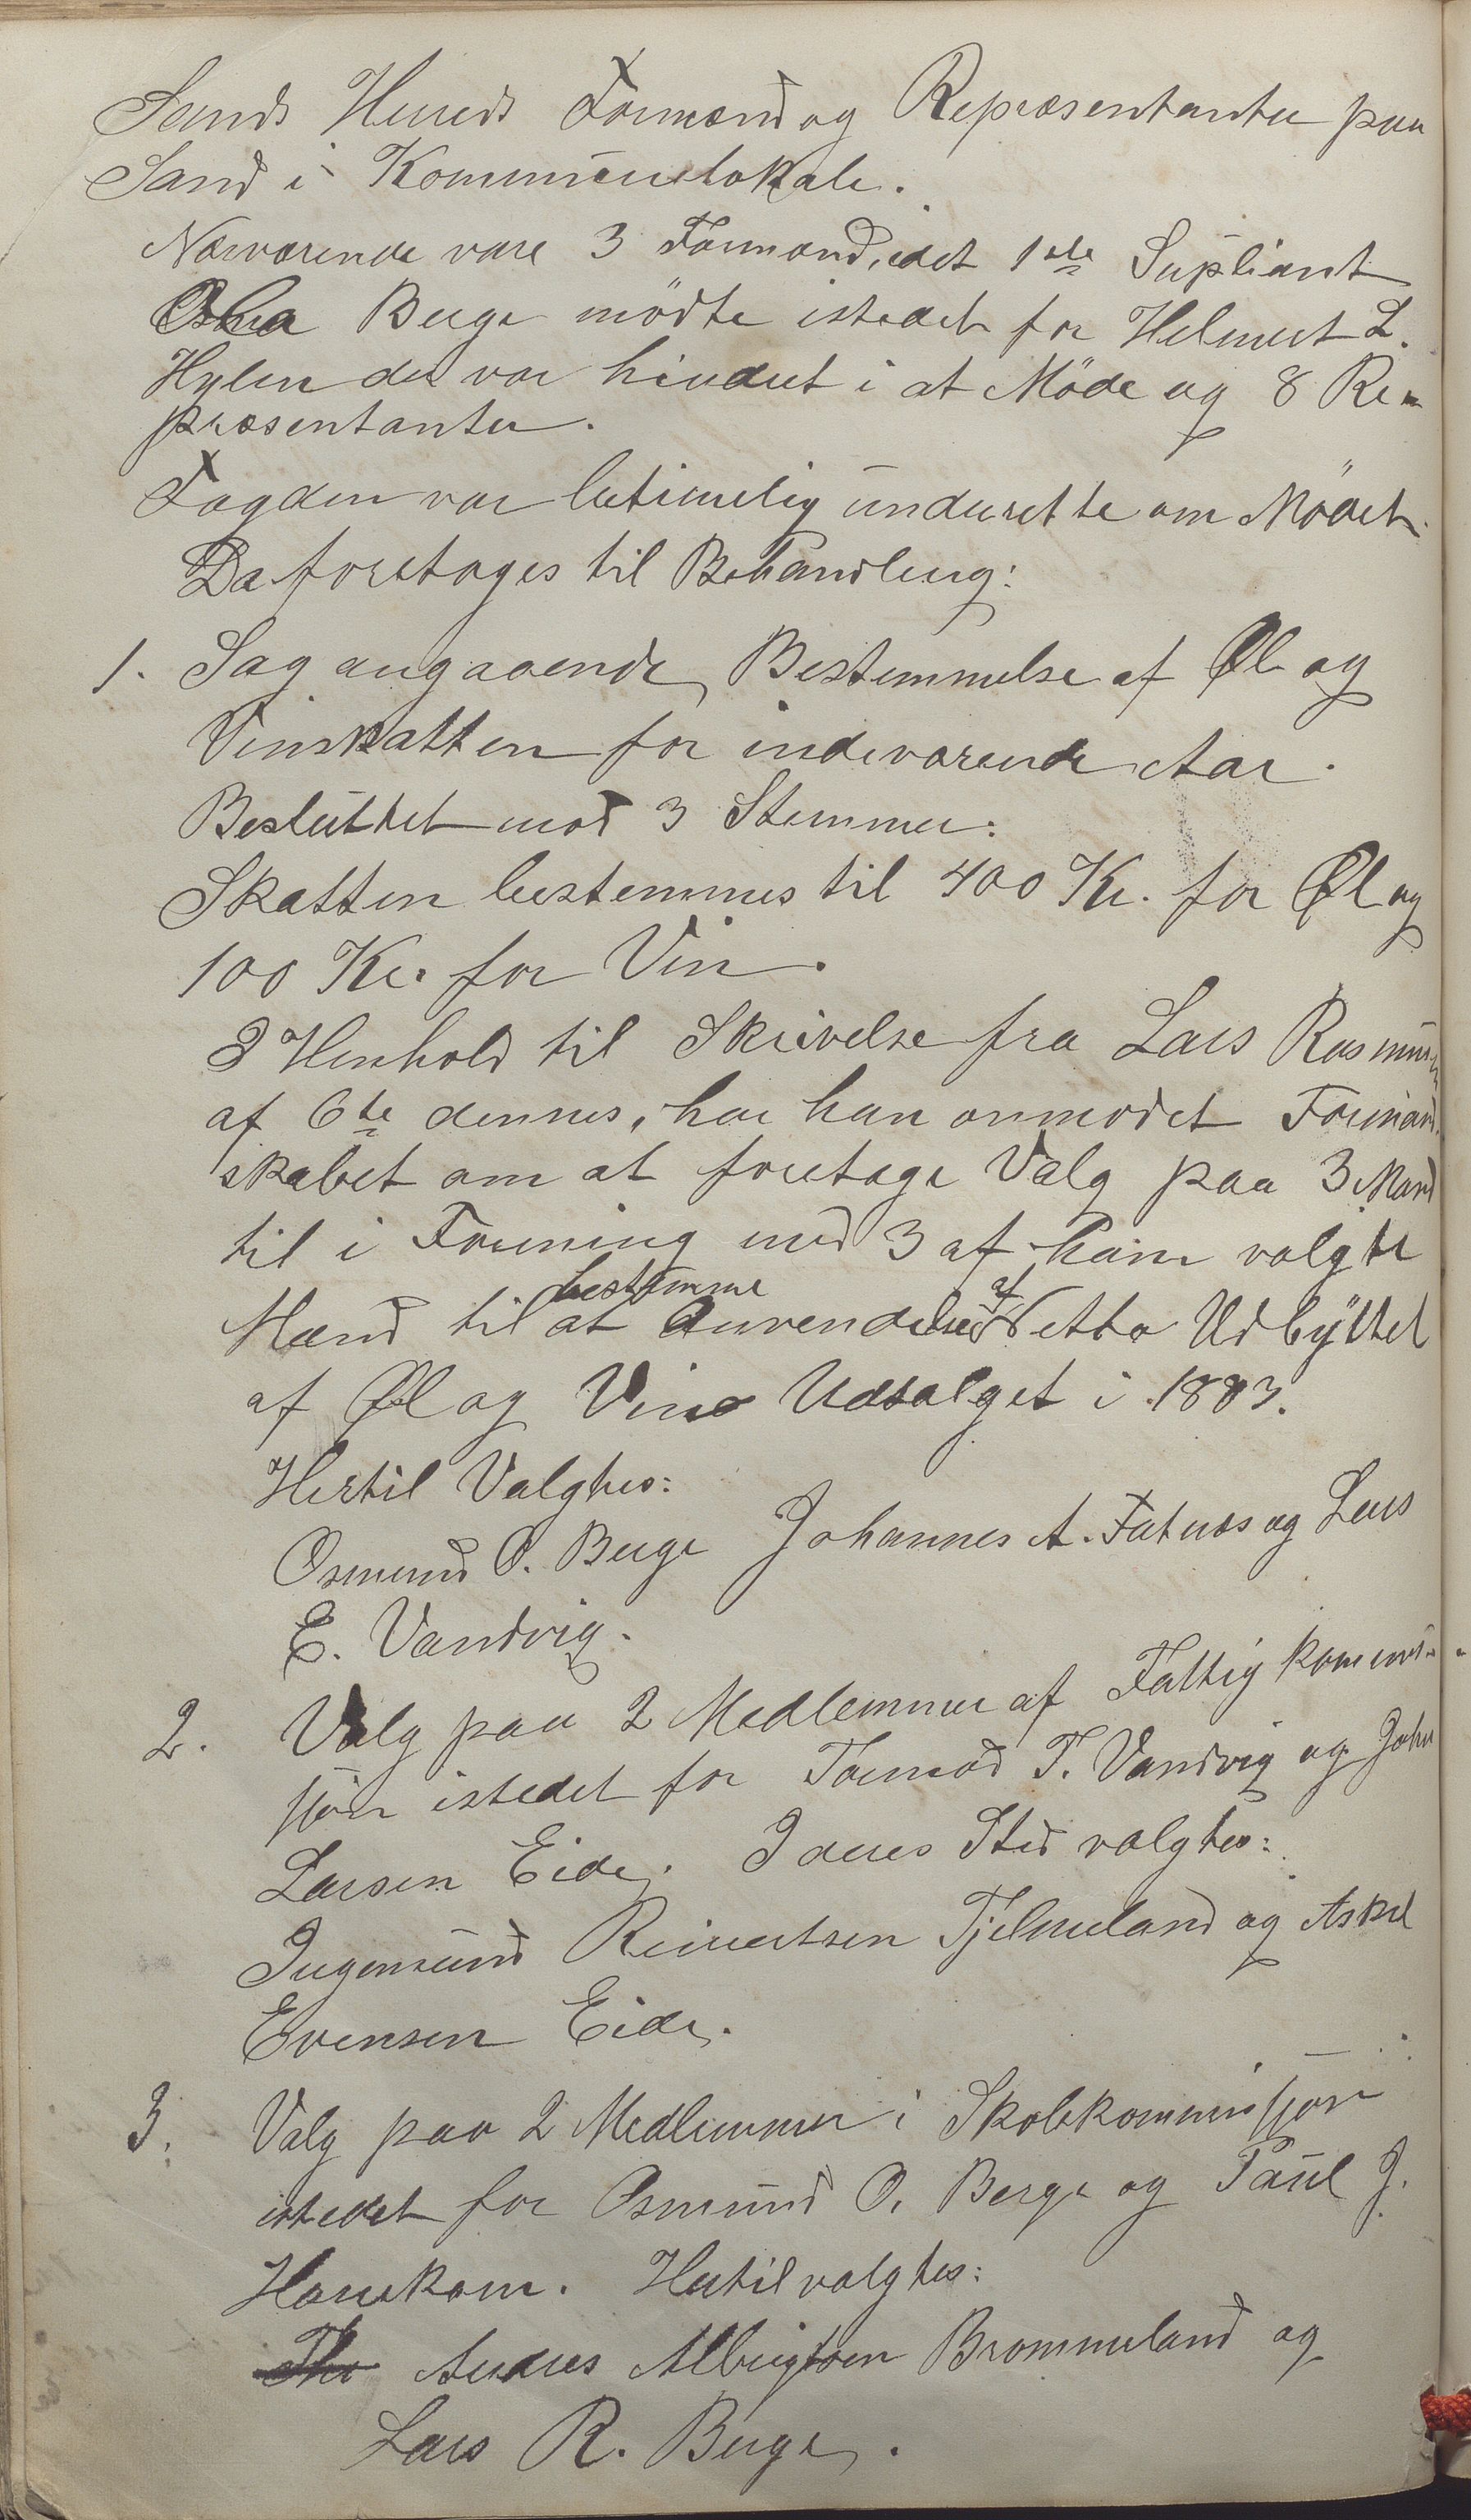 Sands Herreds Formænd og Repræsentanter paa
Sand i Kommunelokale.
Nærværende vare 3 Formænd, idet 1ste Supliant
Berge mödte istedet for Helmert L.
Hylen der var hindret i at Möde og 8 Re-
præsentanter.
Fogden var betimelig underrette om Mödet.
Da foretoges til Behandling:
1. Sag angaaende Bestemmelse af Øl og
Vinskatten for indeværende Aar.
Besluttet mod 3 Stemmer:
Skatten bestemmes til 400 Kr. for Øl og
100 Kr. for Vin.
I Henhold til Skrivelse fra Lars Rasmussen
af 6te dennes, har han anmodet Formand
skabet om at foretage Valg paa 3 Mænd
til i Forening med 3 af ham valgte
Mænd til at bestemme Anvendelsen af Netto Udbyttet
af Øl og Vin Udsalget i 1883.
Hertil Valgtes:
Osmund O. Berge Johannes A. Fatnæs og Lars
E. Vandvig.
2. Valg paa 2 Medlemmer af Fattigkommis-
sjon istedet for Tormod T. Vandvig og John
Larsen Eide. I deres Sted valgtes:
Ingemund Reinertsen Tjelmeland og Askel
Evensen Eide.
3. Valg paa 2 Medlemmer i Skolekommissjon
istedet for Osmund O. Berge og Paul J.
Hauskom. Hertil valgtes:
The Andres Albrigtsen Brommeland og
Lars R. Berge.